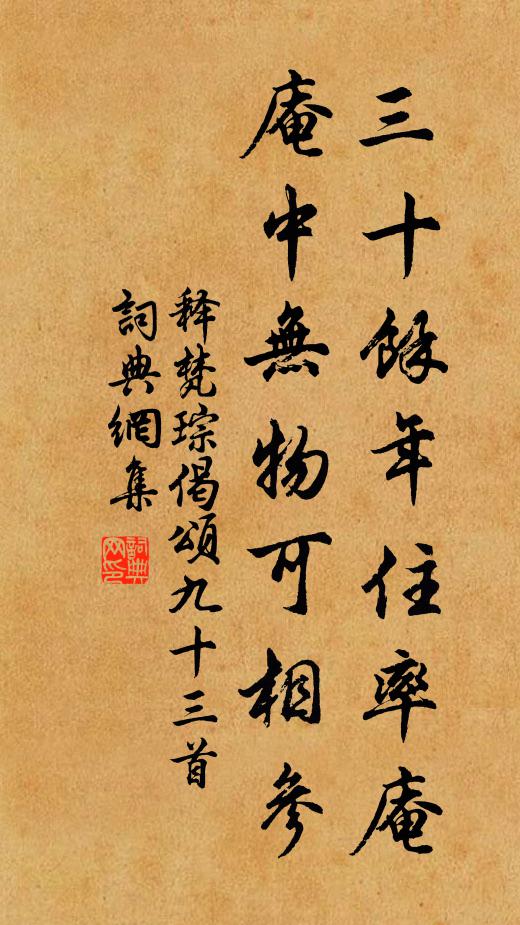 三十餘年住率庵
庵中無物可相參
释梵琮偈頌九十三首
詞典網集
詞典
网印